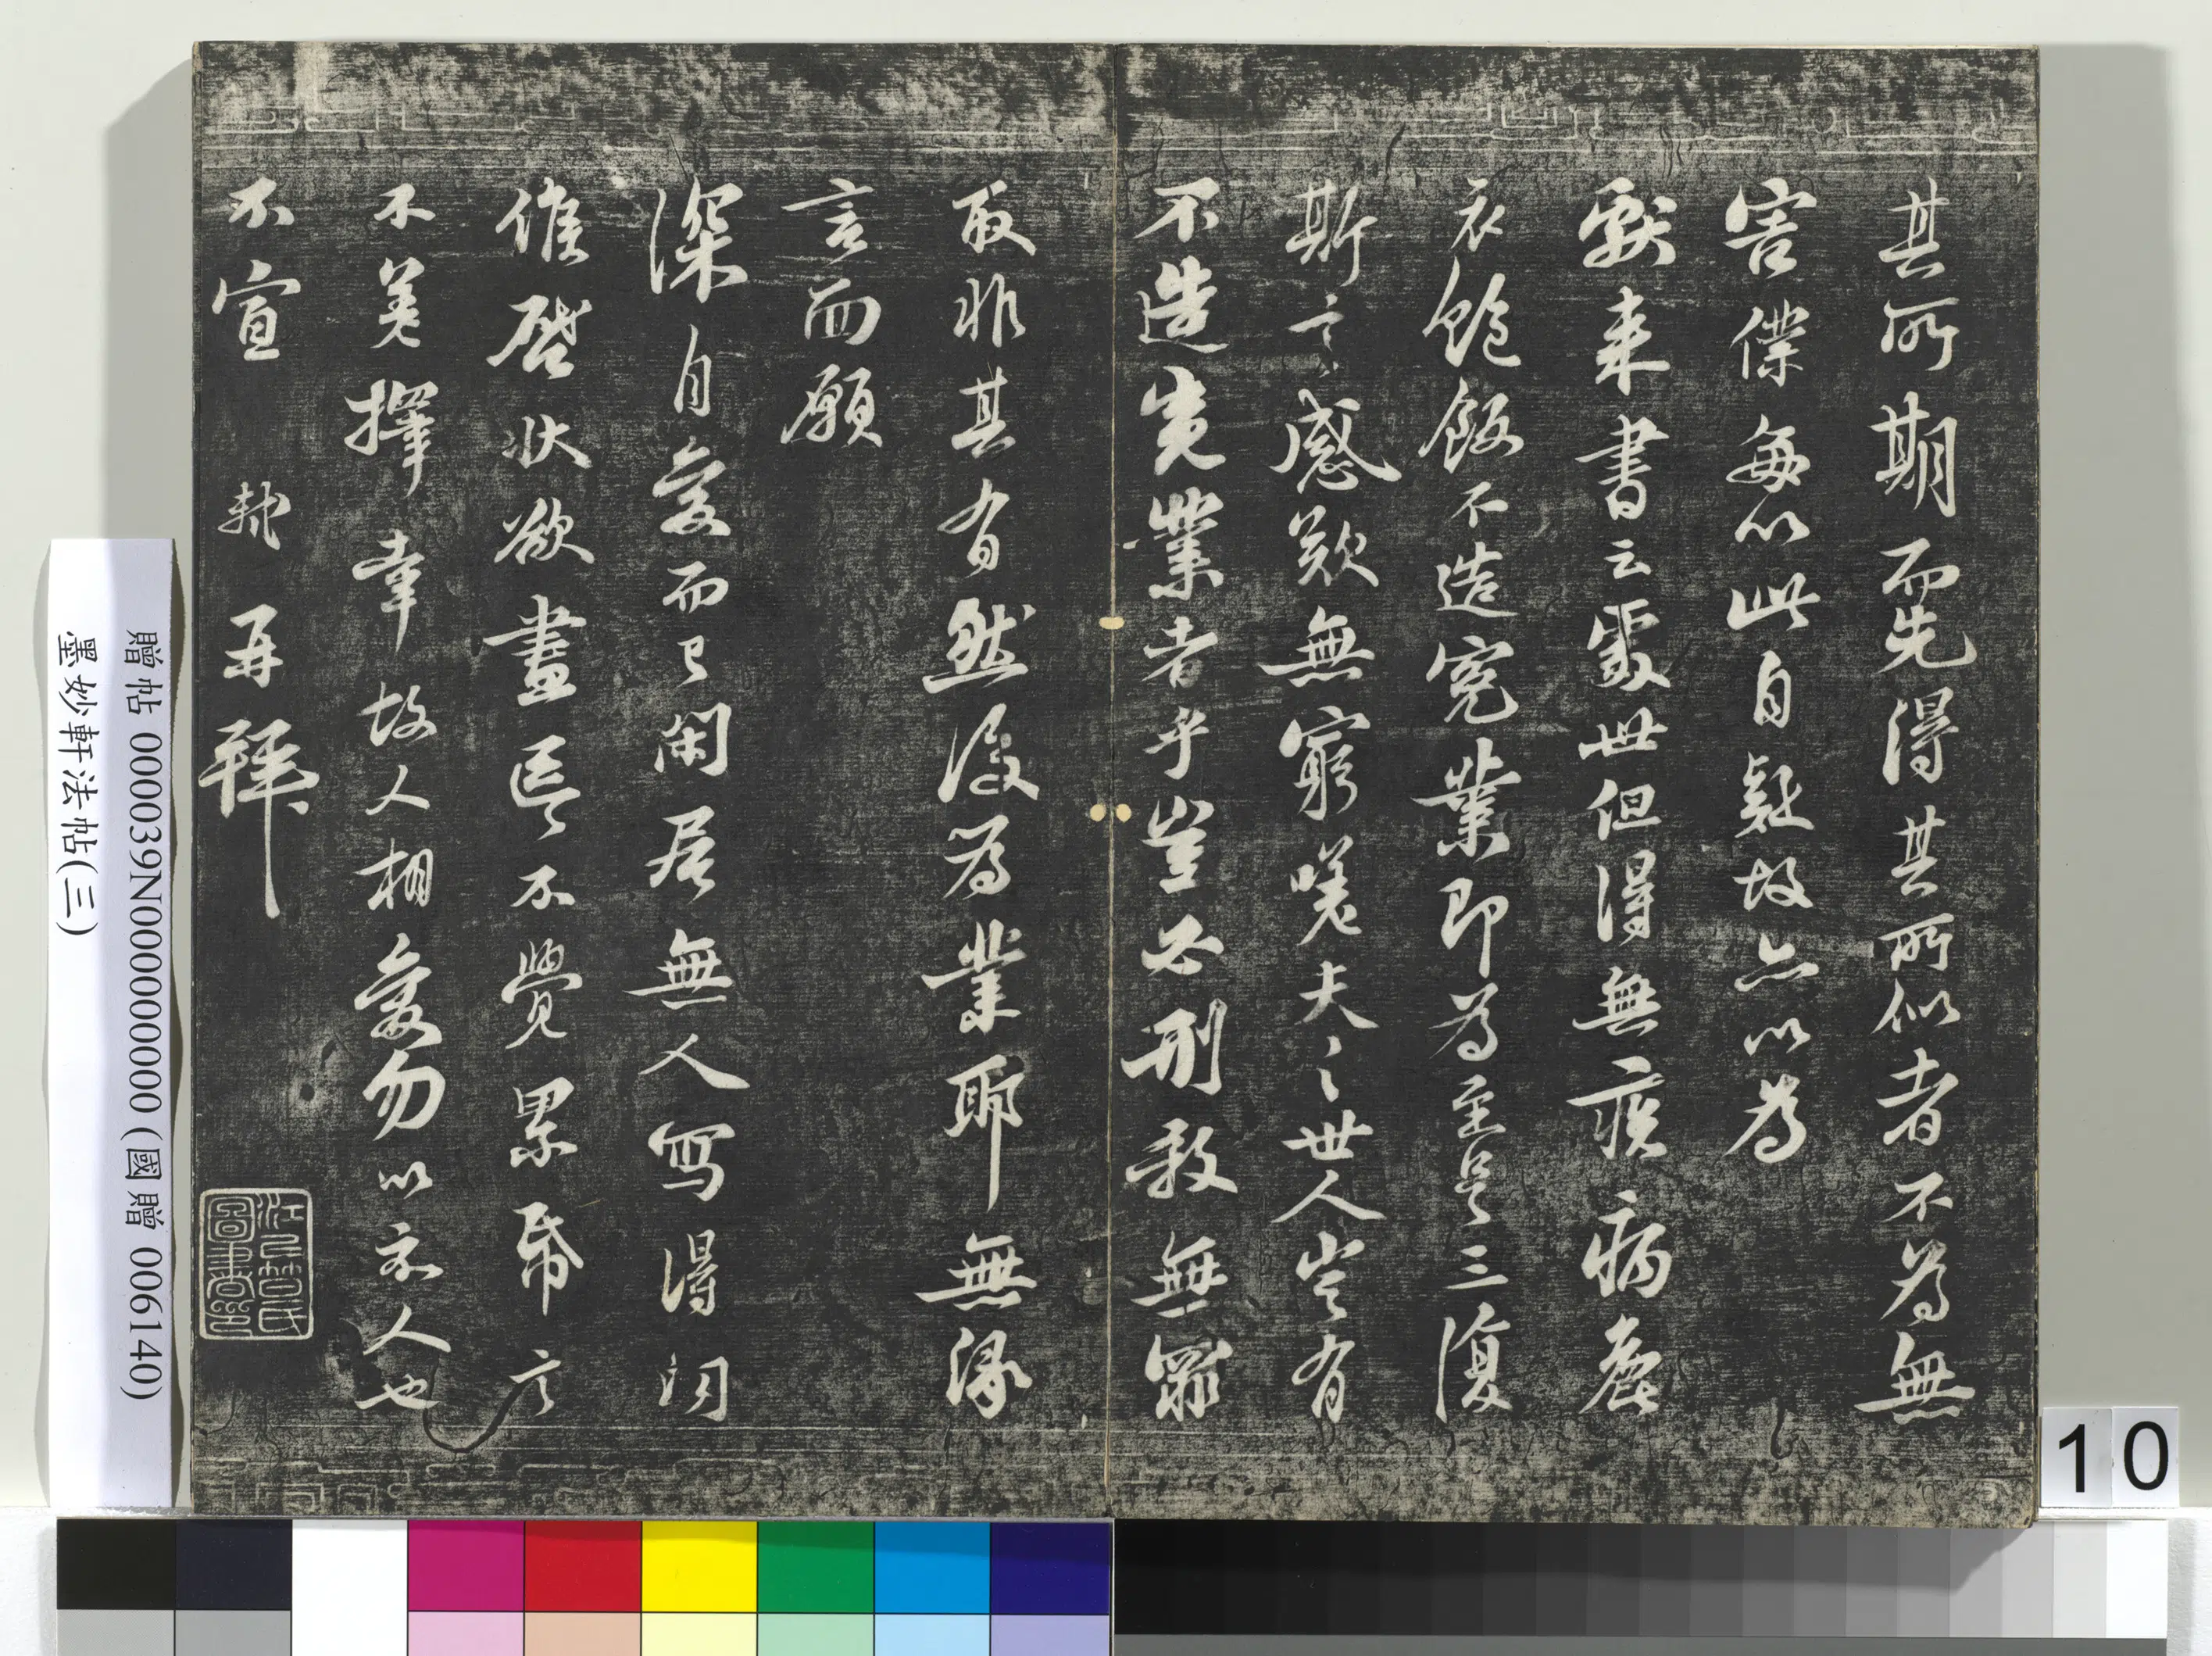 其所期而先得其所似者不為無
害僕每以此自疑故亦以為
獻來書云處世但得無疾病麤
衣飽飯不造冤業即為至足三復
斯言感歎無窮嗟夫夫之世人豈有
不造冤業者乎豈必刑殺無罪
取非其有然後為業耶無緣
言而願
深自愛而已閑居無人寫得問
候啓狀欲盡區區不覺累幅言
不羙擇幸故人相愛勿以示人也
不宣 軾再拜
贈帖 000039N000000000 (國贈 006140)
墨妙軒法帖(三)
10